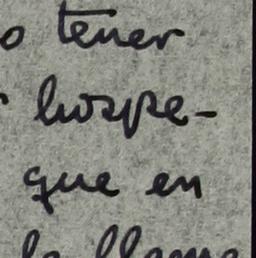 o tener
hospe-
que en
le llama